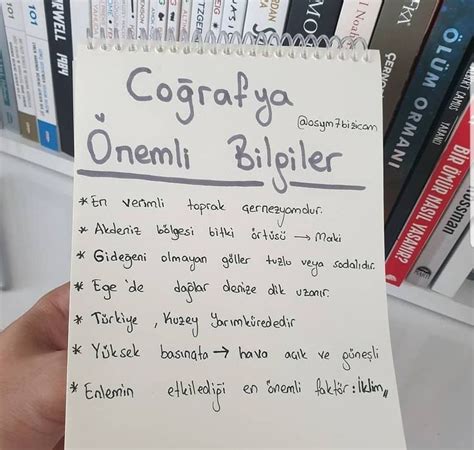 Coğrafya
@osym7bizicam
Önemli Bilgiler
* En verimli toprak çernezyomdur.
* Akdeniz bölgesi bitki örtüsü → Maki
* Gideğeni olmayan göller tuzlu veya sodalıdır.
* Ege'de dağlar denize dik uzanır.
* Türkiye, Kuzey Yarımkürededir
* Yüksek basınçta → hava açık ve güneşli
* Enlemin etkilediği en önemli faktör: İklim,,
101
101
1984
ÖLÜM ORMANI
BİR ÖMÜR NASIL YAŞANIR?